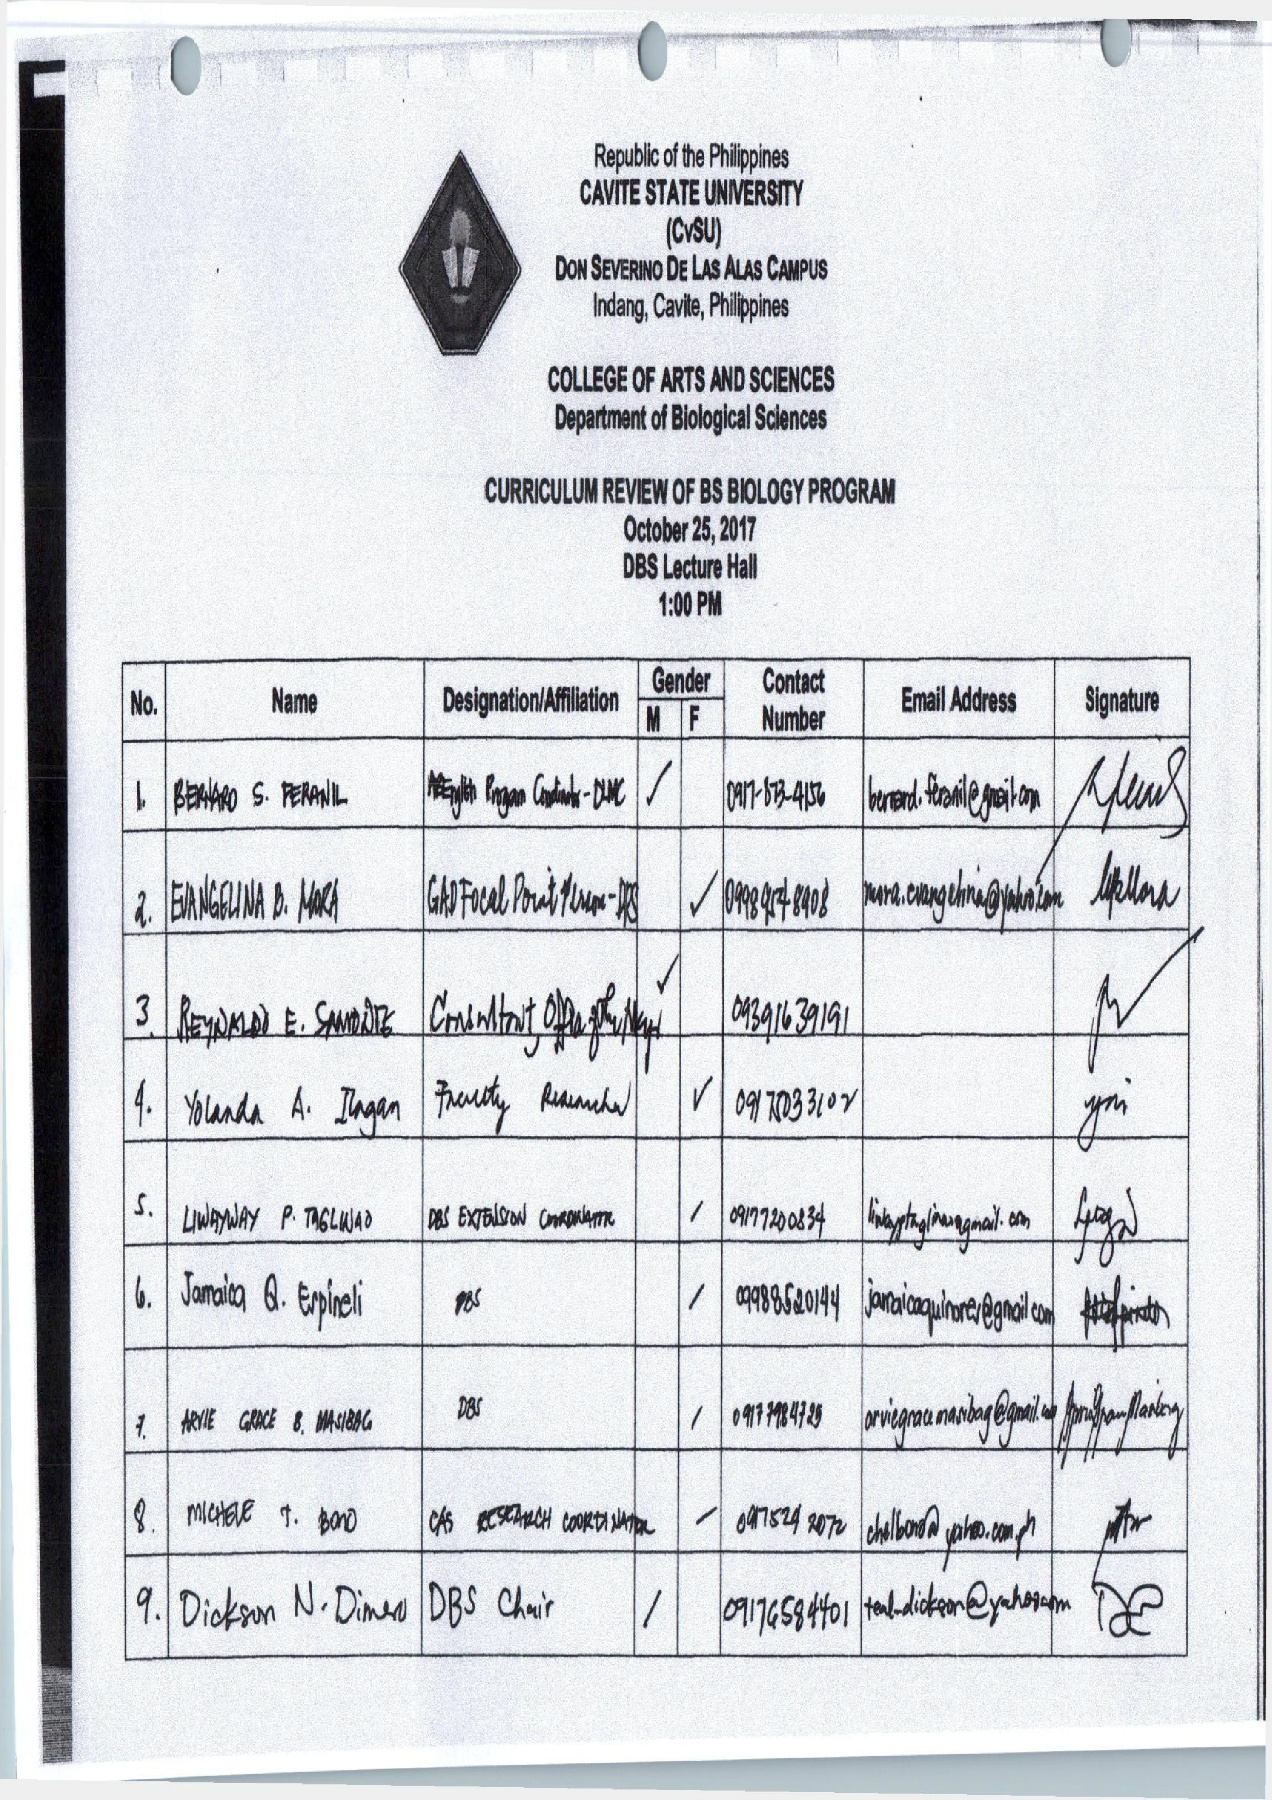 Republic of the Philippines
CAVITE STATE UNIVERSITY
(CvSU)
DON SEVERINO DE LAS ALAS CAMPUS
Indang, Cavite, Philippines
COLLEGE OF ARTS AND SCIENCES
Department of Biological Sciences
CURRICULUM REVIEW OF BS BIOLOGY PROGRAM
October 25, 2017
DBS Lecture Hall
1:00 PM
No. Name Designation/Affiliation Gender M F Contact Number Email Address Signature
1. BERNARD S. FERANIL Program Coordinator - DLMC ✓ bernard.feranil@gmail.com
2. EVANGELINA B. MORA GAD Focal Point Person - DBS ✓ 09989548908 mora.evangelina@yahoo.com
3. REYNALDO E. SAMONTE Consultant, ✓ 09391639191
4. Yolanda A. Ilagan Faculty Researcher ✓ 09175033102
5. LIWAYWAY P. TAGLINAO DBS EXTENSION COORDINATOR / 09177200834
6. Jamaica Q. Espineli DBS / 09988520144 jamaicaquinores@gmail.com
7. ARVIE GRACE B. MASIBAG DBS / 09177984725 arviegracemasibag@gmail.com
8. MICHELE T. BONO CAS RESEARCH COORDINATOR / 09175292072 chelbono@yahoo.com.ph
9. Dickson N. Dimero DBS Chair / 09176584401